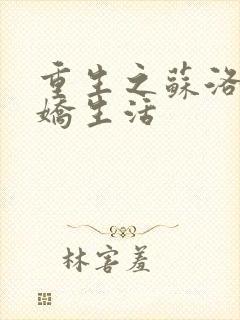 重生之蘇洛
嬌生活
林害羞